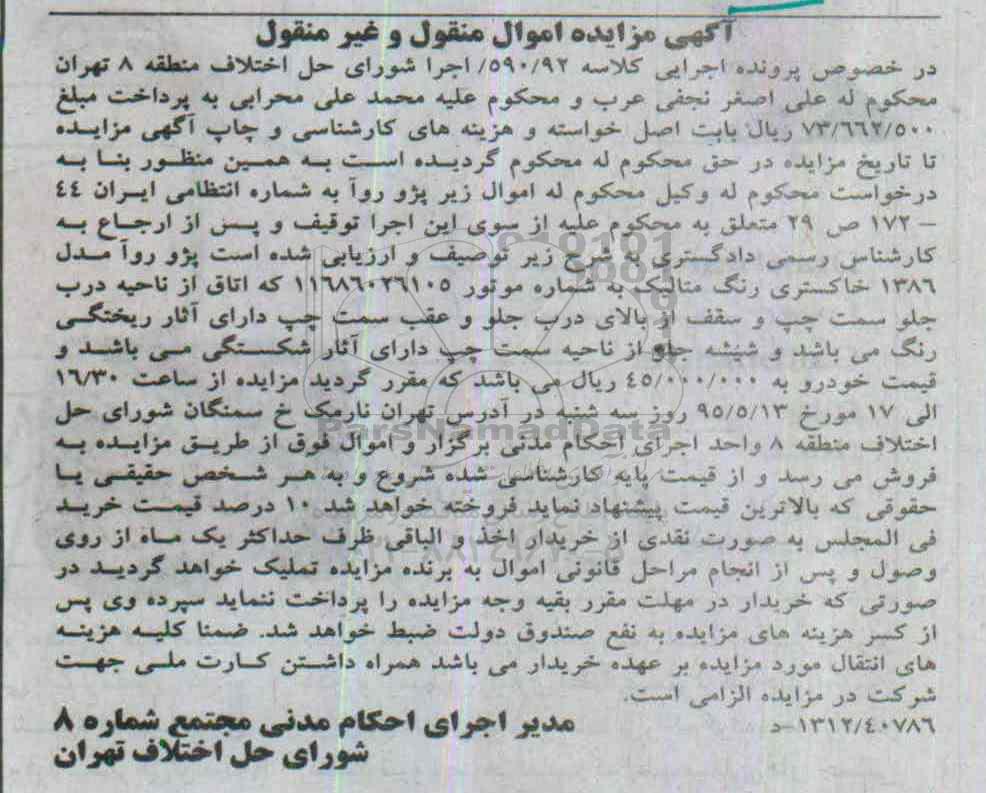 آگهی مزایده اموال منقول و غیر منقول
در خصوص پرونده اجرایی کلاسه ۵۹۰/۹۲/ اجرا شورای حل اختلاف منطقه ۸ تهران
محکوم له علی اصغر نجفی عرب و محکوم علیه محمد علی محرابی به پرداخت مبلغ
۷۳/۶۶۲/۵۰۰ ریال بابت اصل خواسته و هزینه های کارشناسی و چاپ آگهی مزایده
تا تاریخ مزایده در حق محکوم له محکوم گردیده است به همین منظور بنا به
درخواست محکوم له وکیل محکوم له اموال زیر پژو روآ به شماره انتظامی ایران ٤٤
– ۱۷۲ ص ۲۹ متعلق به محکوم علیه از سوی این اجرا توقیف و پس از ارجاع به
کارشناس رسمی دادگستری به شرح زیر توصیف و ارزیابی شده است پژو روآ مدل
۱۳۸٦ خاکستری رنگ متالیک به شماره موتور ۱۱٦۸٦۰۲٦۱۰۵ که اتاق از ناحیه درب
جلو سمت چپ و سقف از بالای درب جلو و عقب سمت چپ دارای آثار ریختگی
رنگ می باشد و شیشه جلو از ناحیه سمت چپ دارای آثار شکستگی می باشد و
قیمت خودرو به ٤۵/۰۰۰/۰۰۰ ریال می باشد که مقرر گردید مزایده از ساعت ۱٦/۳۰
الی ۱۷ مورخ ۹۵/۵/۱۳ روز سه شنبه در آدرس تهران نارمک خ سمنگان شورای حل
اختلاف منطقه ۸ واحد اجرای احکام مدنی برگزار و اموال فوق از طریق مزایده به
فروش می رسد و از قیمت پایه کارشناسی شده شروع و به هر شخص حقیقی یا
حقوقی که بالاترین قیمت پیشنهاد نماید فروخته خواهد شد ۱۰ درصد قیمت خرید
فی المجلس به صورت نقدی از خریدار اخذ و الباقی ظرف حداکثر یک ماه از روی
وصول و پس از انجام مراحل قانونی اموال به برنده مزایده تملیک خواهد گردید در
صورتی که خریدار در مهلت مقرر بقیه وجه مزایده را پرداخت ننماید سپرده وی پس
از کسر هزینه های مزایده به نفع صندوق دولت ضبط خواهد شد. ضمنا کلیه هزینه
های انتقال مورد مزایده بر عهده خریدار می باشد همراه داشتن کارت ملی جهت
شرکت در مزایده الزامی است.
۱۳۱۲/٤۰۷۸٦–د
مدیر اجرای احکام مدنی مجتمع شماره ۸
شورای حل اختلاف تهران
ParsNamadData